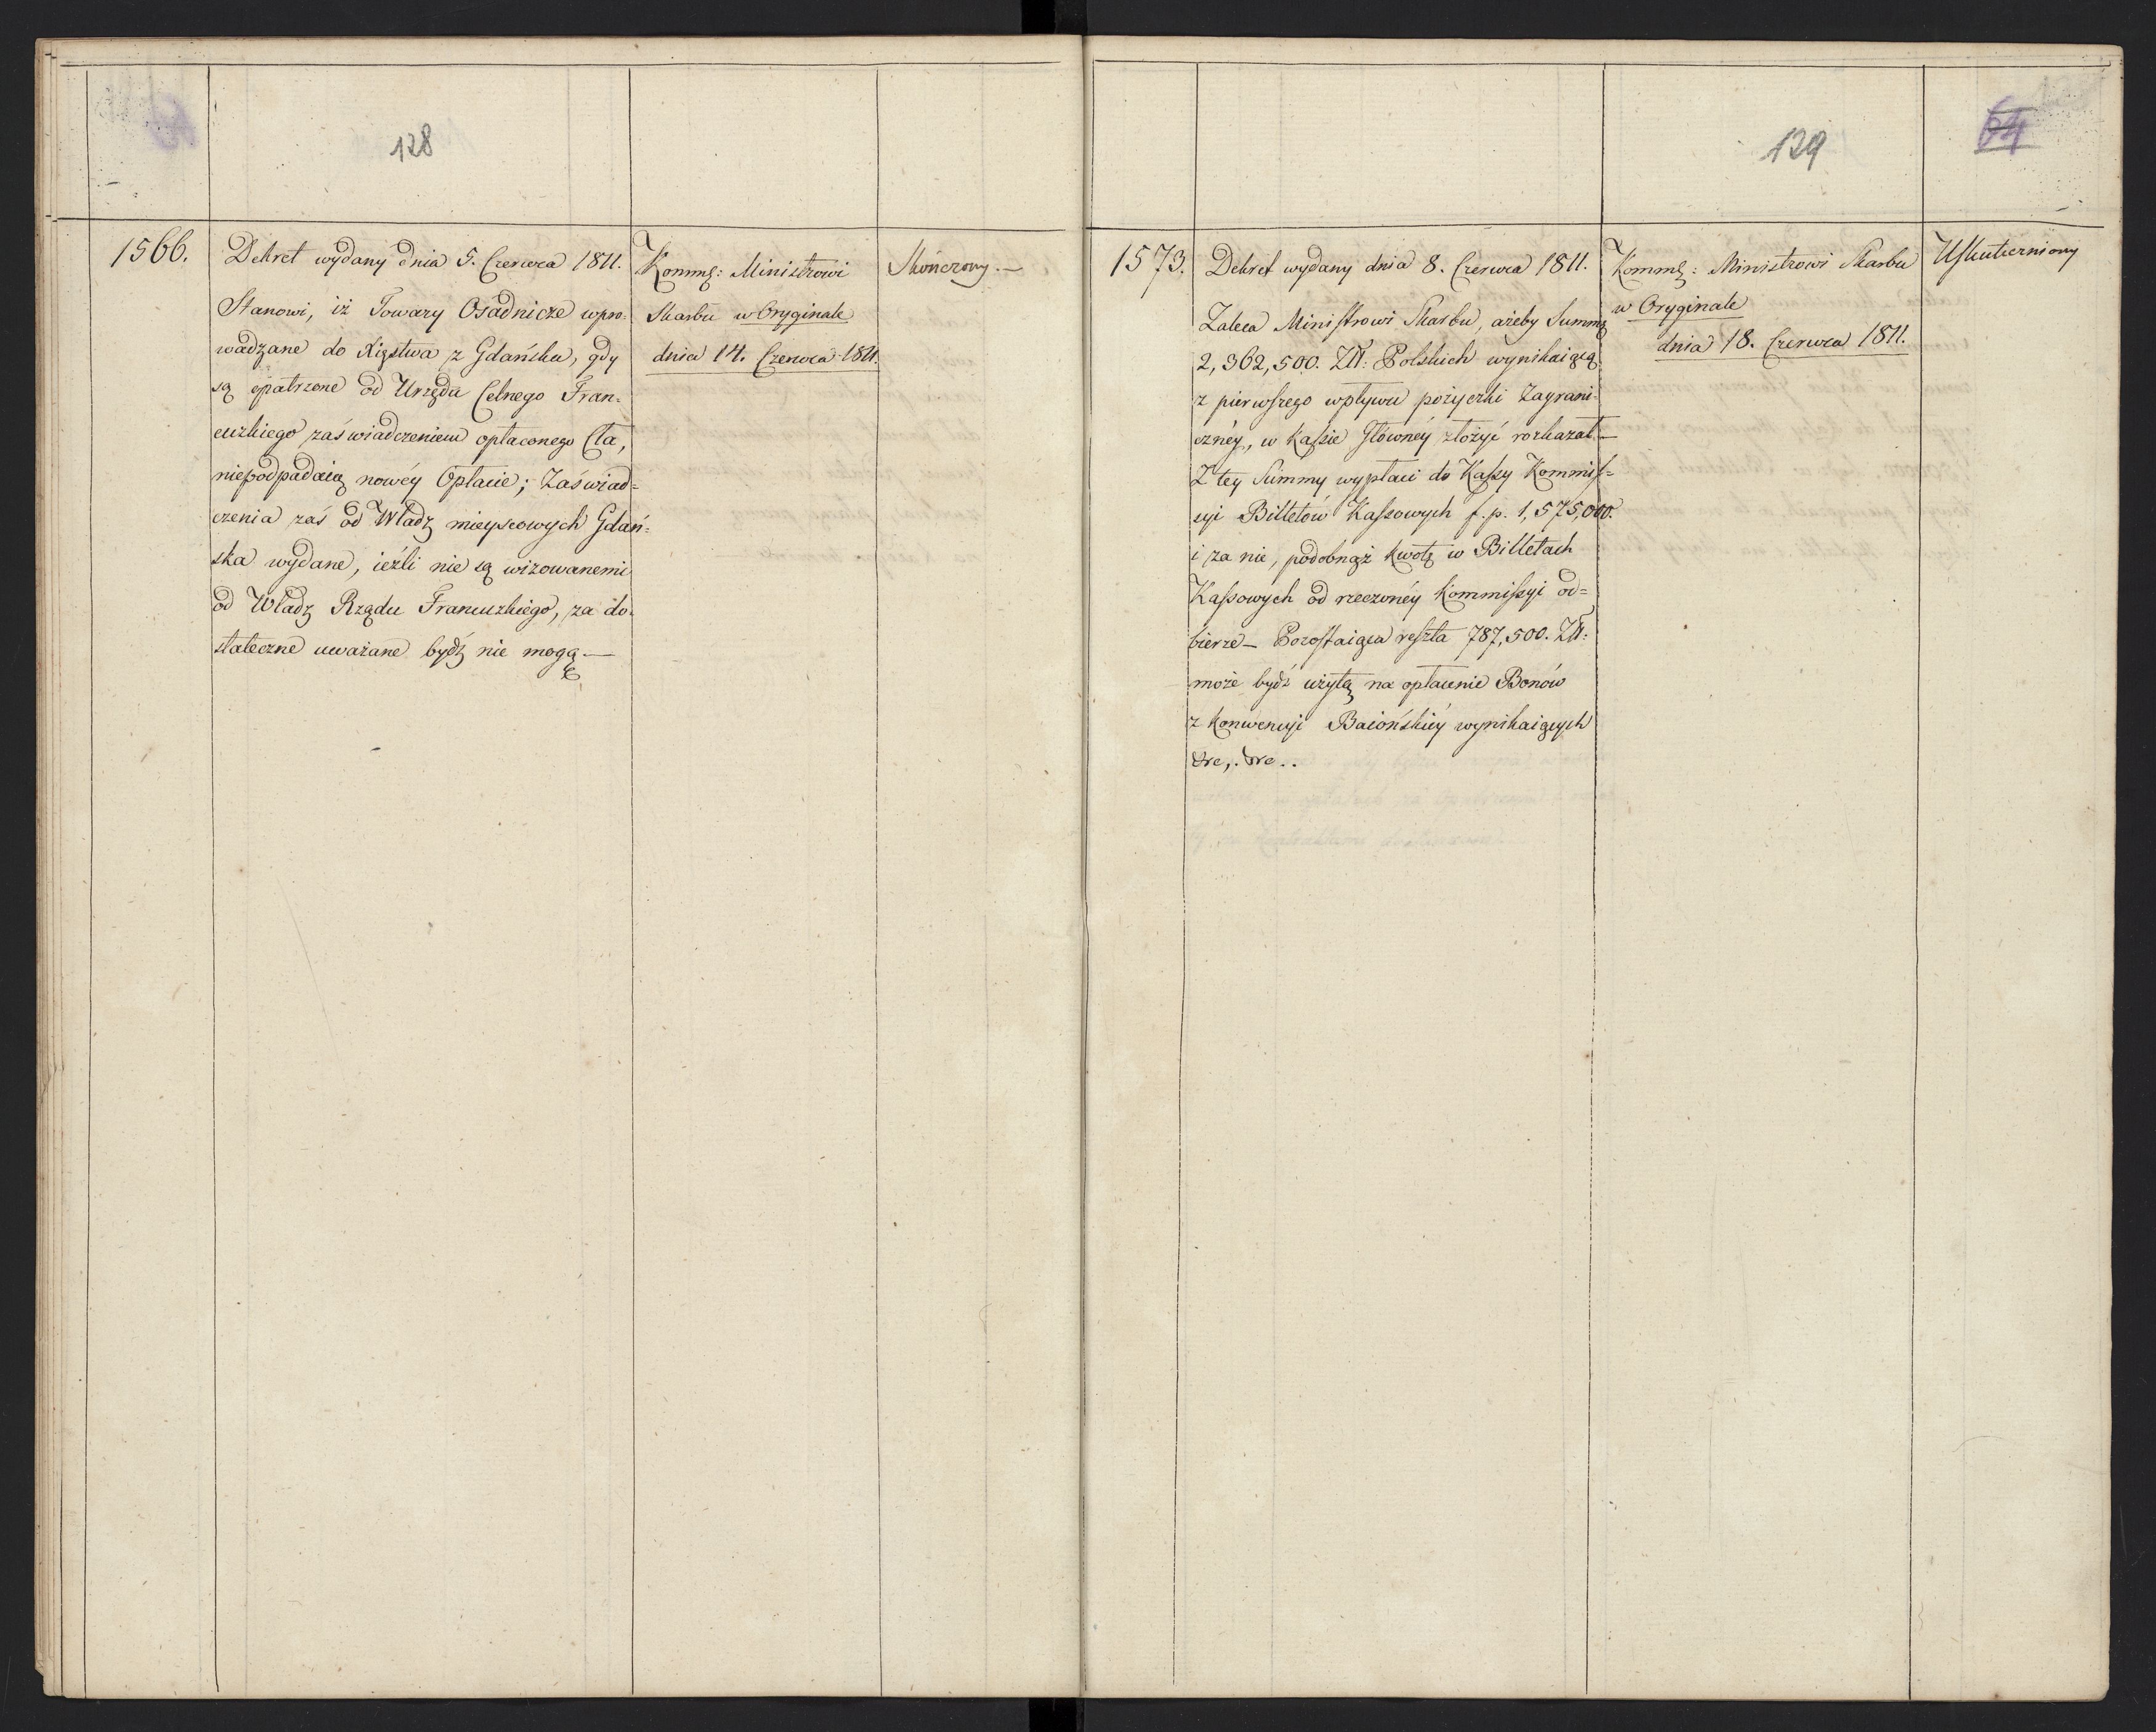 128
1566.
Dekret wydany dnia 5. Czerwca 1811.
Stanowi, iż Towary Osadnicze wpro-
wadzane do Xięstwa z Gdańska, gdy
są opatrzone od Urzędu Celnego Fran-
cuzkiego zaświadczeniem opłaconego Cła,
niepodpadaią nowéy Opłacie; Zaświad-
czenia zaś od Władz mieyscowych Gdań-
ska wydane, ieźli nie są wizowanemi
od Władz Rządu Francuzkiego, za do-
stateczne uważane bydź nie mogą.—
Kommę: Ministrowi
Skarbu w Oryginale
dnia 14. Czerwca 1811.
Skończony.—
129
64
1573.
Dekret wydany dnia 8. Czerwca 1811.
Zaleca Ministrowi Skarbu, ażeby Summę
2,362,500. Złł: Polskich wynikaiącą
z pierwszego wpływu pożyczki Zagrani-
cznéy, w Kassie Głównéy złożyć rozkazał—
Z tey Summy wypłaci do Kassy Kommis-
syi Billetów Kassowych f. p. 1,575,000.
i za nie, podobnąż kwotę w Billetach
Kassowych od rzeczonéy Kommissyi od=
bierze— Pozostaiąca reszta 787,500. Złł:
może bydź użytą na opłacenie Bonów
z Konwencyi Baiońskiéy wynikaiących
&c,. &c..
Kommę: Ministrowi Skarbu
w Oryginale
dnia 18. Czerwca 1811.
Uskuteczniony